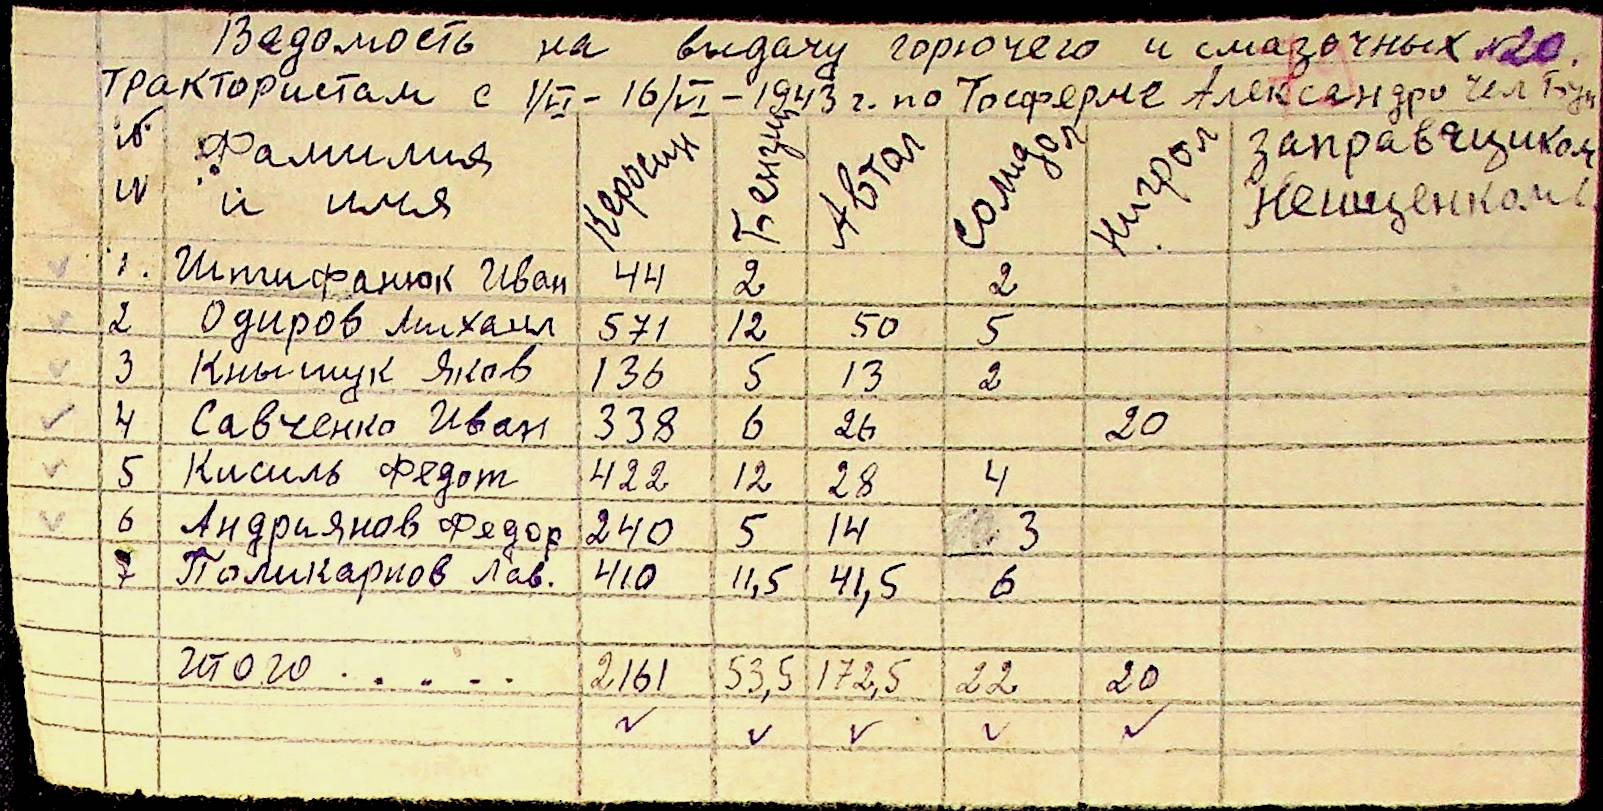 Ведомость на выдачу горючего и смазочных №20.
трактористам с 1/VI - 16/VI - 1943 г. по Госферме Александро
№ № Фамилия и имя Керосин Бензин Автол Солидол Нигрол заправщиком
1. Штифанюк Иван 44 2 2
2 Одиров Михаил 571 12 50 5
3 Кныщук Яков 136 5 13 2
4 Савченко Иван 338 6 26 20
5 Кисиль Федот 422 12 28 4
6 Андриянов Федор 240 5 14 3
7 Поликарпов Лав. 410 11,5 41,5 6
Итого . . . . . 2161 53,5 172,5 22 20